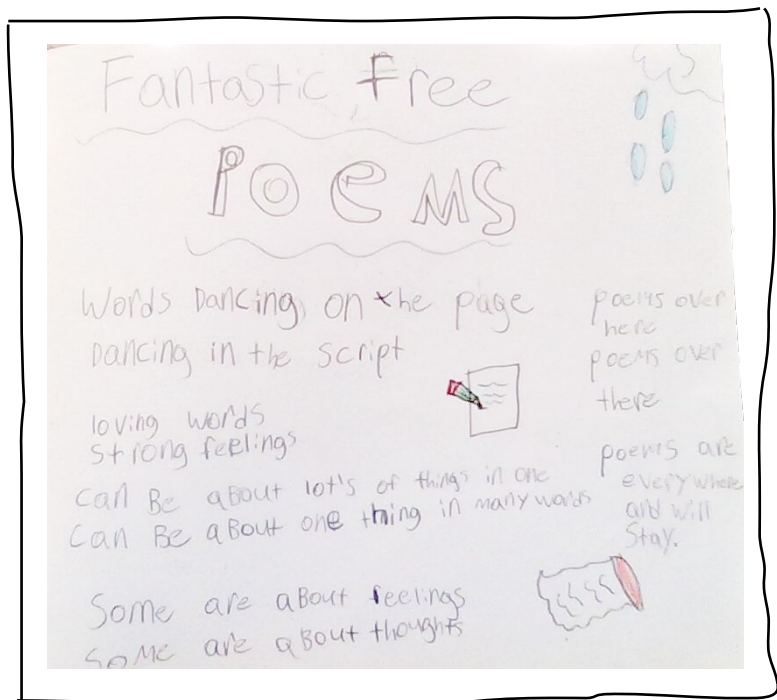 Fantastic Free
Poems
Words Dancing on the page
Dancing in the script
loving words
strong feelings
can Be aBout lot's of things in one
can Be aBout one thing in many words
Some are aBout feelings
some are aBout thoughts
poems over
here
poems over
there
poems are
everywhere
and will
Stay.